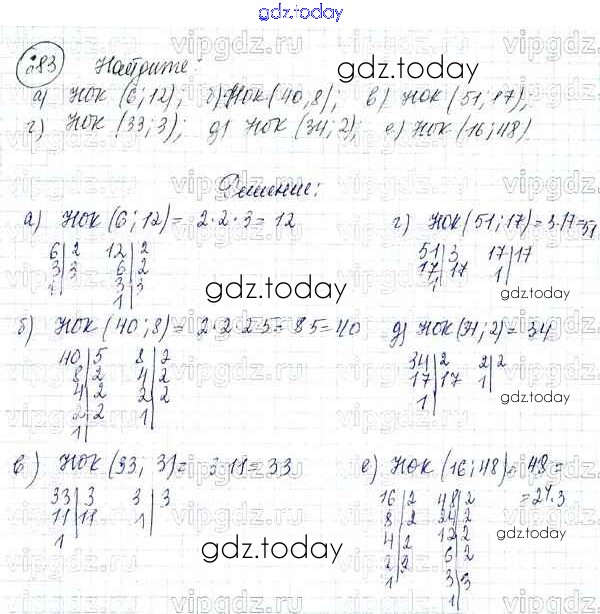 gdz.today
283 Найдите:
а) НОК (6; 12); б) НОК (40, 8); в) НОК (51; 17);
г) НОК (33; 3); д) НОК (34; 2); е) НОК (16; 48)
Решение:
а) НОК (6; 12) = 2·2·3 = 12
6|2 12|2
3|3 6|2
1| 3|3
1|
г) НОК (51; 17) = 3·17 = 51
51|3 17|17
17|17 1|
1|
б) НОК (40; 8) = 2·2·2·5 = 8·5 = 40
40|5 8|2
8|2 4|2
4|2 2|2
2|2 1|
1|
д) НОК (34; 2) = 34
34|2 2|2
17|17 1|
1|
в) НОК (33; 3) = 3·11 = 33
33|3 3|3
11|11 1|
1
е) НОК (16; 48) = 48 =
= 2⁴·3
16|2 48|2
8|2 24|2
4|2 12|2
2|2 6|2
1 3|3
1|
gdz.today
gdz.today
gdz.today
gdz.today
gdz.today
gdz.today